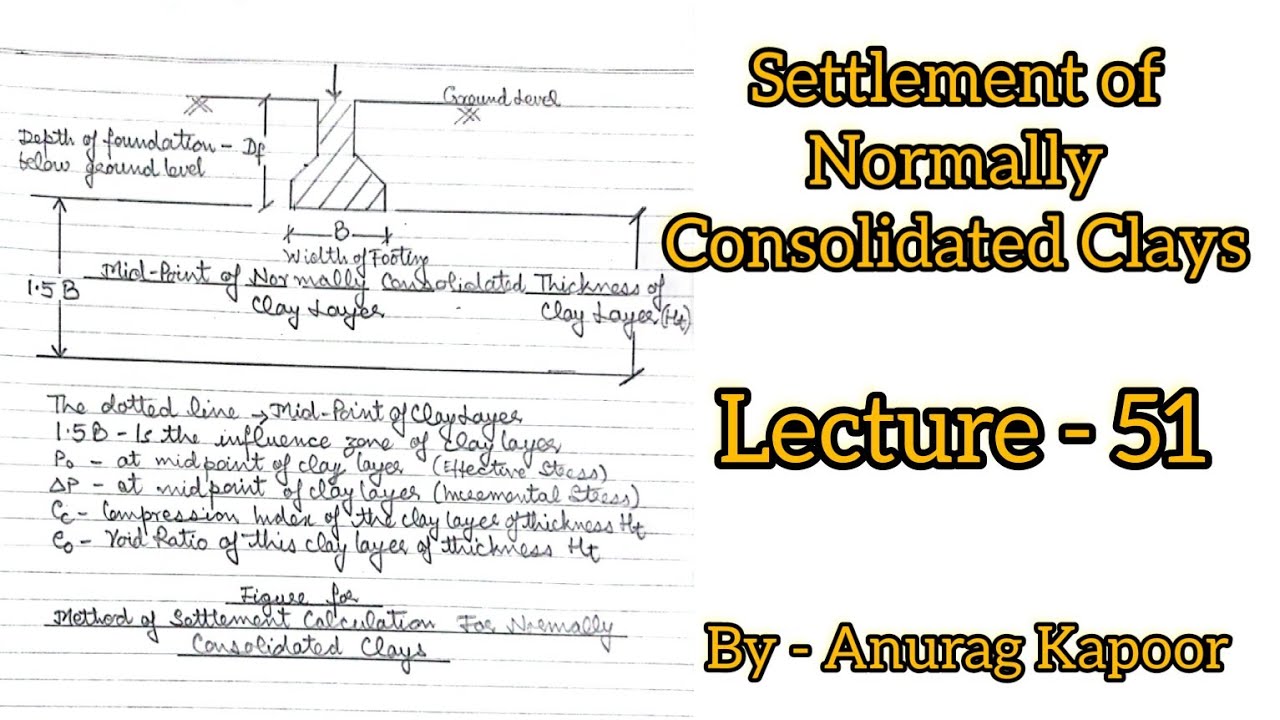 Ground Level
Depth of foundation - Df
below ground level
B
Width of Footing
1.5 B
Mid-Point of Normally Consolidated
Clay Layer
Thickness of
Clay Layer (Ht)
The dotted line → Mid-Point of Clay Layer
1.5 B - Is the influence zone of clay layer
P₀ - at midpoint of clay layer (Effective Stress)
ΔP - at midpoint of clay layer (Incremental Stress)
Cc - Compression Index of the clay layer of thickness Ht
e₀ - Void Ratio of this clay layer of thickness Ht
Figure for
Method of Settlement Calculation For Normally
Consolidated Clays
Settlement of
Normally
Consolidated Clays
Lecture - 51
By - Anurag Kapoor